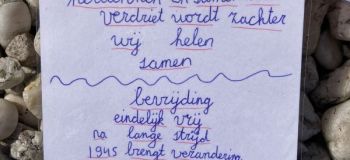 herdenken en samen
verdriet wordt zachter
wij helen
samen
bevrijding
eindelijk vrij
na lange strijd
1945 brengt verandering